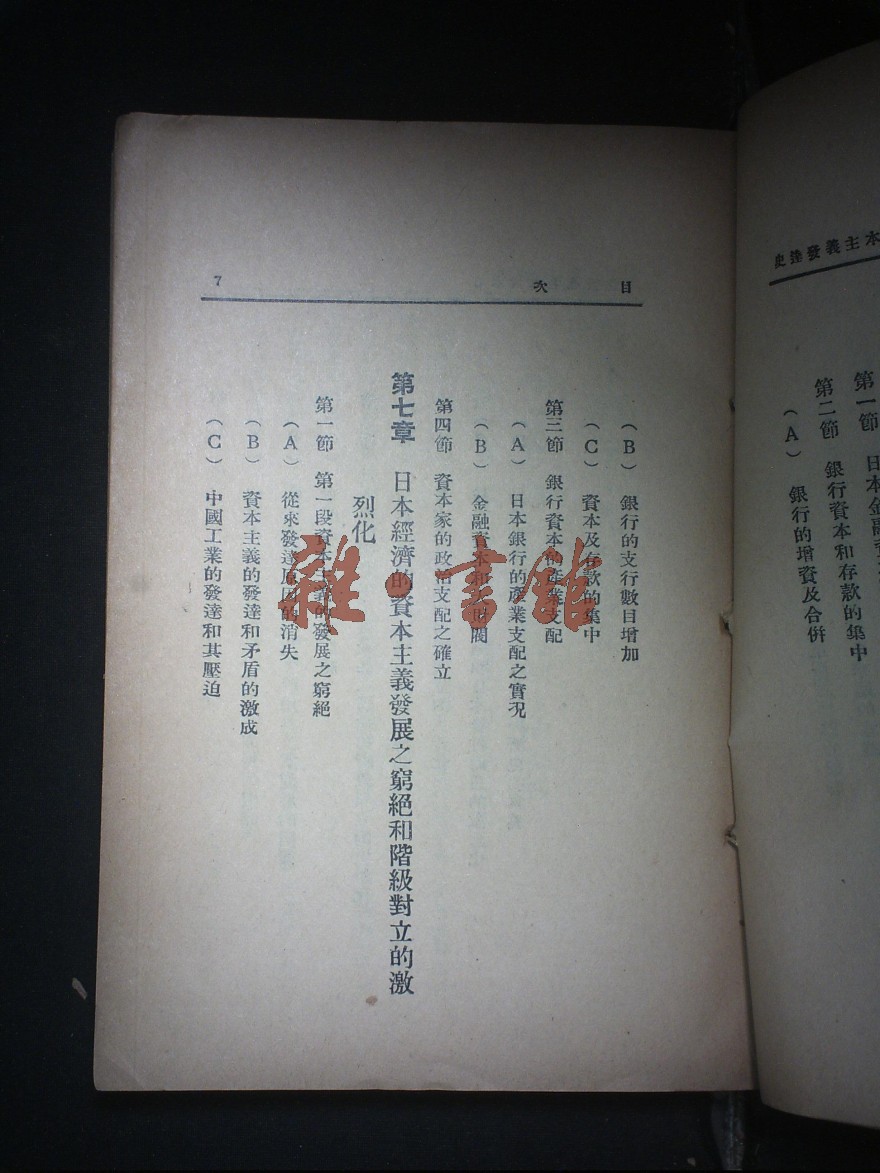 本主義發達史
第一節 日本金融資
第二節 銀行資本和存款的集中
（A） 銀行的增資及合併
目次 7
（B） 銀行的支行數目增加
（C） 資本及存款的集中
第三節 銀行資本的產業支配
（A） 日本銀行的產業支配之實况
（B） 金融資本和大財閥
第四節 資本家的政治支配之確立
第七章 日本經濟的資本主義發展之窮絕和階級對立的激
烈化
第一節 第一段資本主義的發展之窮絕
（A） 從來發達原因的消失
（B） 資本主義的發達和矛盾的激成
（C） 中國工業的發達和其壓迫
雜·書館